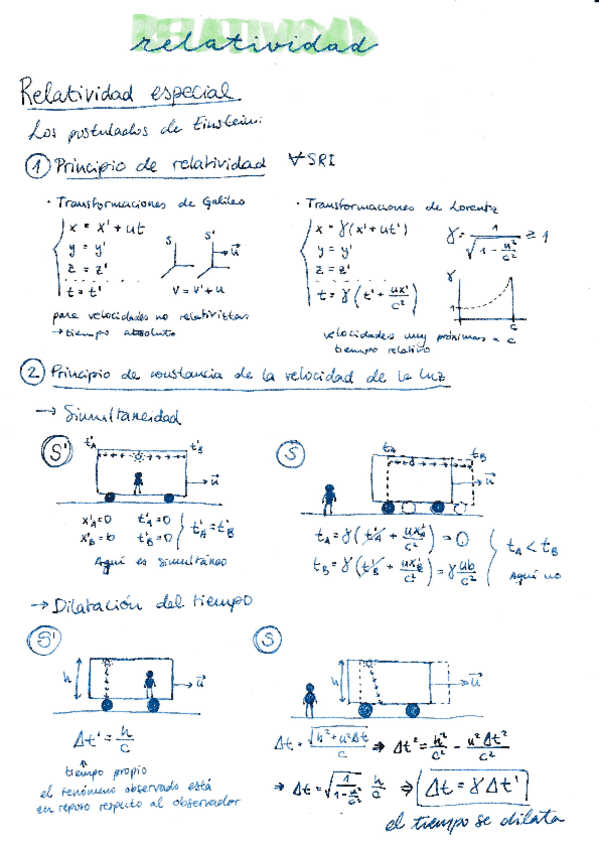 relatividad
Relatividad especial
Los postulados de Einstein:
① Principio de relatividad ∀ SRI
· Transformaciones de Galileo
x = x' + ut
y = y'
z = z'
t = t'
S S' u⃗
v = v' + u
para velocidades no relativistas
→ tiempo absoluto
· Transformaciones de Lorentz
x = γ(x' + ut')
y = y'
z = z'
t = γ(t' + ux'/c²)
γ = 1/√(1 - u²/c²) ≥ 1
γ
1
c
velocidades muy próximas a c
tiempo relativo
② Principio de constancia de la velocidad de la luz
→ Simultaneidad
S' t'A t'B u⃗
x'A = 0 t'A = 0
x'B = b t'B = 0
t'A = t'B
Aquí es simultáneo
S tA tB u⃗
tA = γ(t'A + ux'A/c²) = 0
tB = γ(t'B + ux'B/c²) = γ ub/c²
tA < tB
aquí no
→ Dilatación del tiempo
S' h u⃗
Δt' = h/c
tiempo propio
el fenómeno observado está
en reposo respecto al observador
S h u⃗
Δt = √(h² + u²Δt)/c ⇒ Δt² = h²/c² - u²Δt²/c²
⇒ Δt = √(1/(1 - u²/c²)) h/c ⇒ Δt = γΔt'
el tiempo se dilata